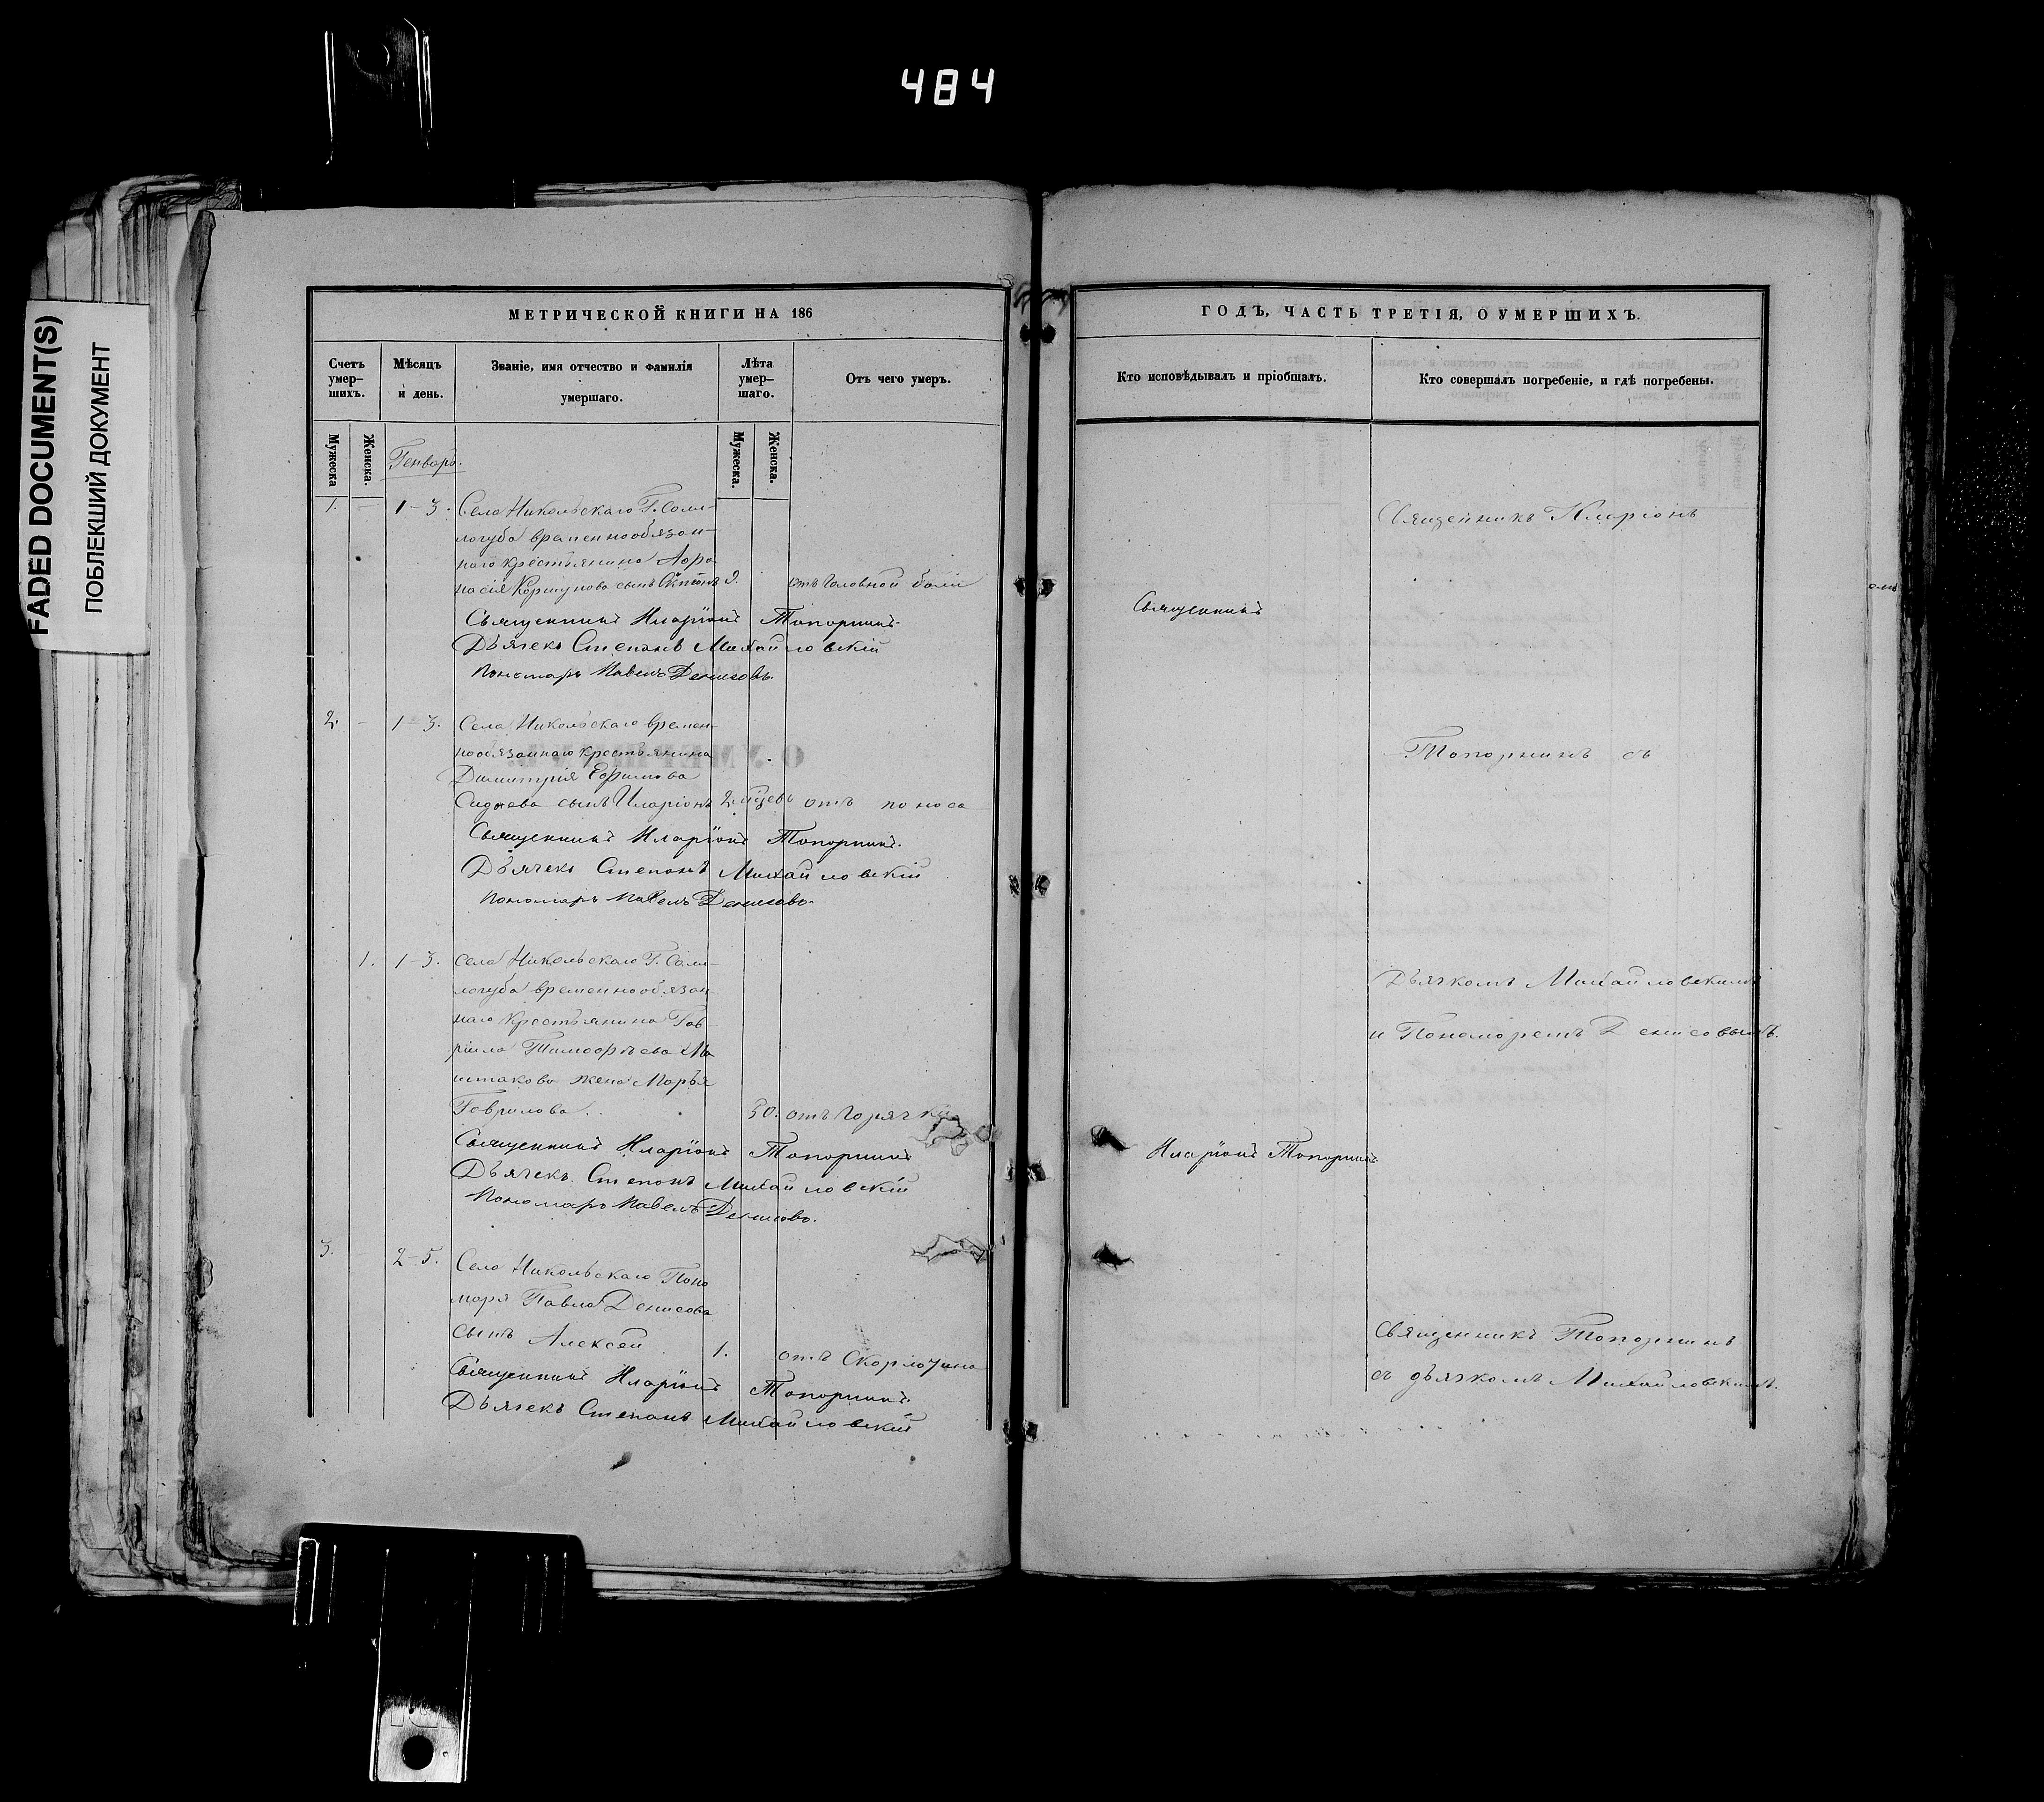 484
FADED DOCUMENT(S)
ПОБЛЕКШИЙ ДОКУМЕНТ
МЕТРИЧЕСКОЙ КНИГИ НА 186
Счетъ умер-шихъ.
Мѣсяцъ и день.
Званіе, имя отчество и фамилія умершаго.
Лѣта умер-шаго.
Отъ чего умеръ.
Мужеска
Женска.
Генварь.
Мужеска.
Женска.
1. — 1-3. Села Никольскаго Г. Сол-
логуба временнообязан-
наго крестьянина Афа
насія Коршунова сынъ 9. отъ головной боли
Священникъ Иларіонъ Топорнинъ.
Дьячекъ Степанъ Михайловскій
Пономарь Павелъ Денисовъ.
2. - 1-3. Села Никольскаго времен-
нообязаннаго крестьянина
Димитрія Ефимова
сынъ Иларіонъ 2. отъ поноса
Священникъ Иларіонъ Топорнинъ.
Дьячекъ Степанъ Михайловскій
Пономарь Павелъ Денисовъ.
1. 1-3. Села Никольскаго Г. Сол-
логуба временнообязан-
наго крестьянина Гав-
ріила Тимофѣева
жена Марья
Гаврилова. 50. отъ горячки
Священникъ Иларіонъ Топорнинъ
Дьячекъ Степанъ Михайловскій
Пономарь Павелъ Денисовъ.
3. 2-5. Села Никольскаго Поно
маря Павла Денисова
сынъ Алексей 1. отъ
Священникъ Иларіонъ Топорнинъ.
Дьячекъ Степанъ Михайловскій
ГОДЪ, ЧАСТЬ ТРЕТІЯ, О УМЕРШИХЪ.
Кто исповѣдывалъ и пріобщалъ.
Кто совершалъ погребеніе, и гдѣ погребены.
Священникъ Иларіонъ
Священникъ
Топорнинъ съ
Дьячкомъ Михайловскимъ
и Пономоремъ Денисовымъ.
Иларіонъ Топорнинъ.
Священникъ Топорнинъ
съ дьячкомъ Михайловскимъ.